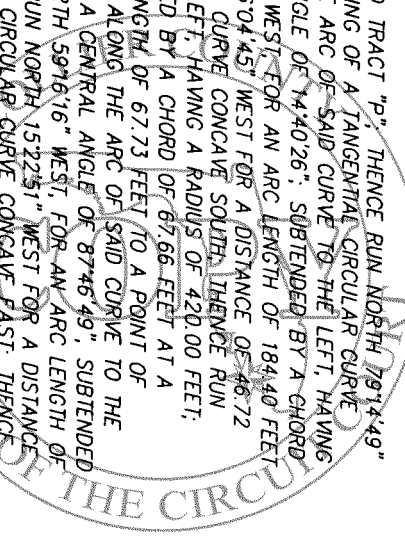 TRACT "P"; THENCE RUN NORTH 79°14'49"
OF A TANGENTIAL CIRCULAR CURVE
ARC OF SAID CURVE TO THE LEFT, HAVING
OF 14°40'26"; SUBTENDED BY A CHORD
WEST FOR AN ARC LENGTH OF 184.40 FEET
WEST FOR A DISTANCE OF 46.72
CURVE CONCAVE SOUTH. THENCE RUN
HAVING A RADIUS OF 420.00 FEET;
BY A CHORD OF 67.66 FEET AT A
OF 67.73 FEET TO A POINT OF
ALONG THE ARC OF SAID CURVE TO THE
A CENTRAL ANGLE OF SUBTENDED
59°16'16" WEST, FOR AN ARC LENGTH OF
RUN NORTH WEST FOR A DISTANCE
CIRCULAR CURVE CONCAVE EAST; THENCE
COUNTY
OF THE CIRCUIT